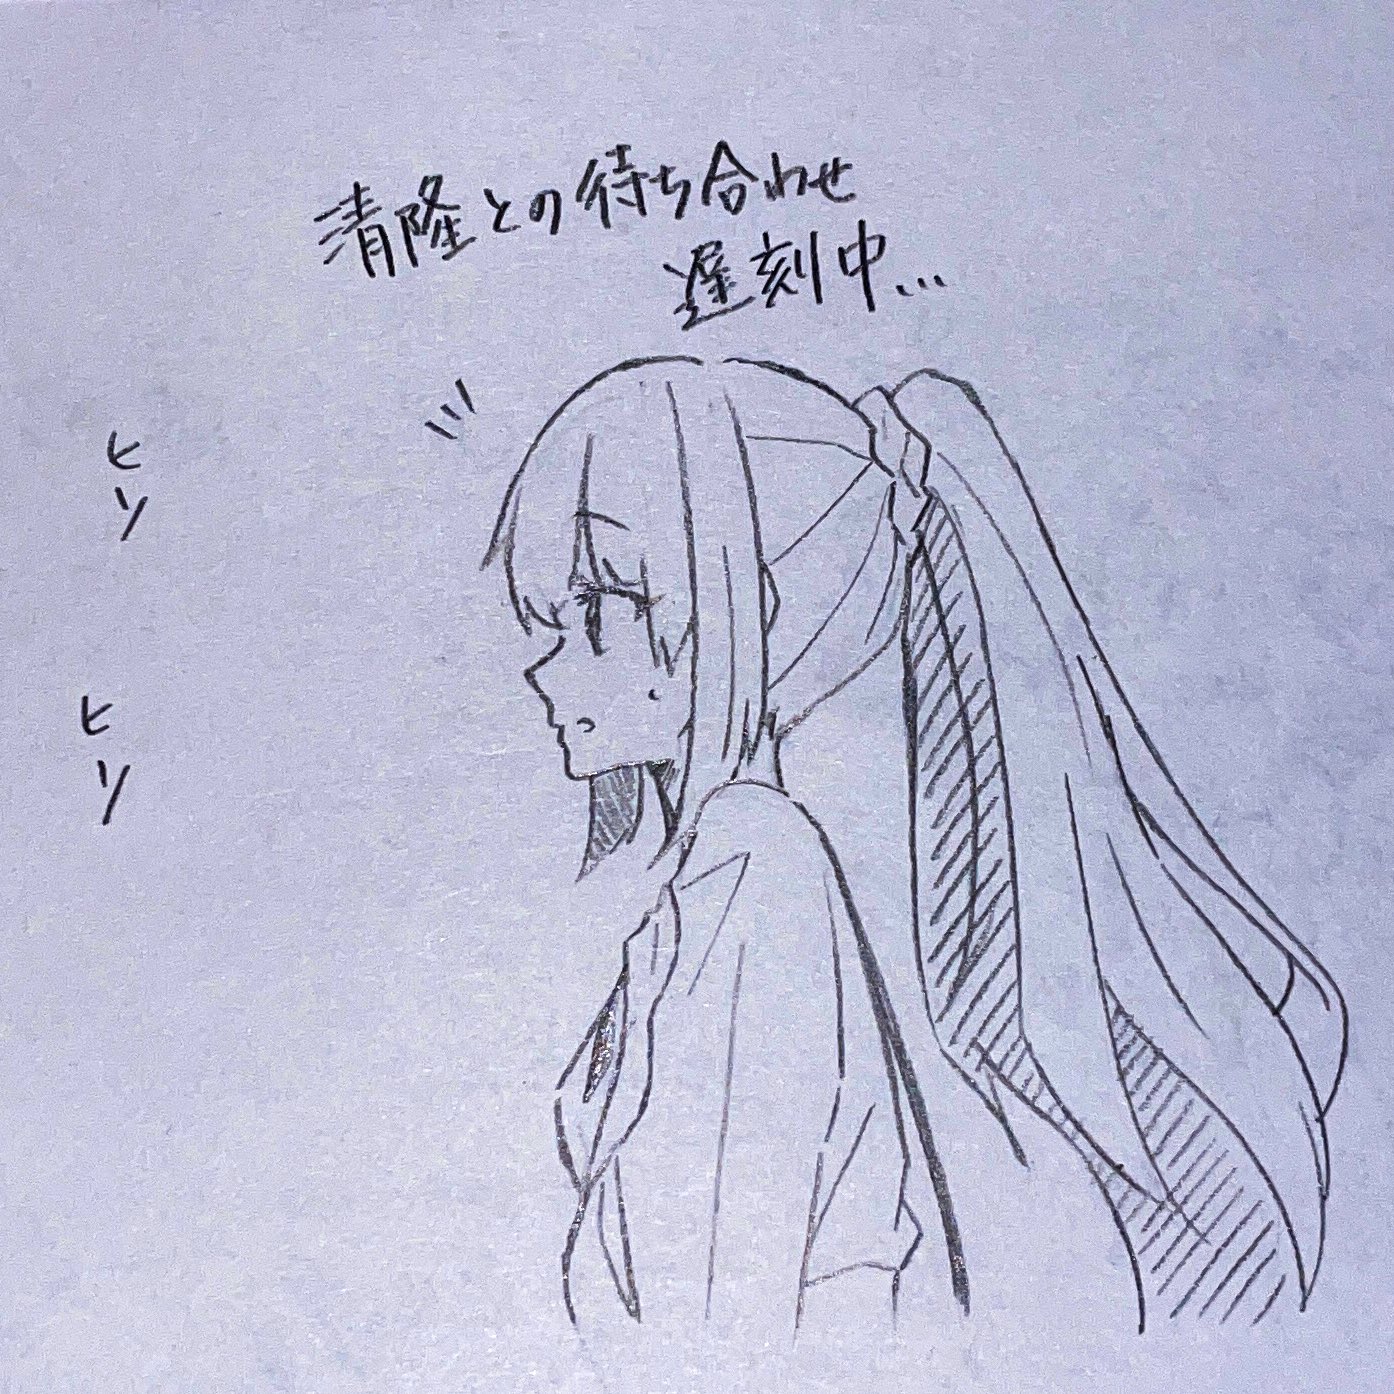 清隆との待ち合わせ
遅刻中...
ヒソ
ヒソ